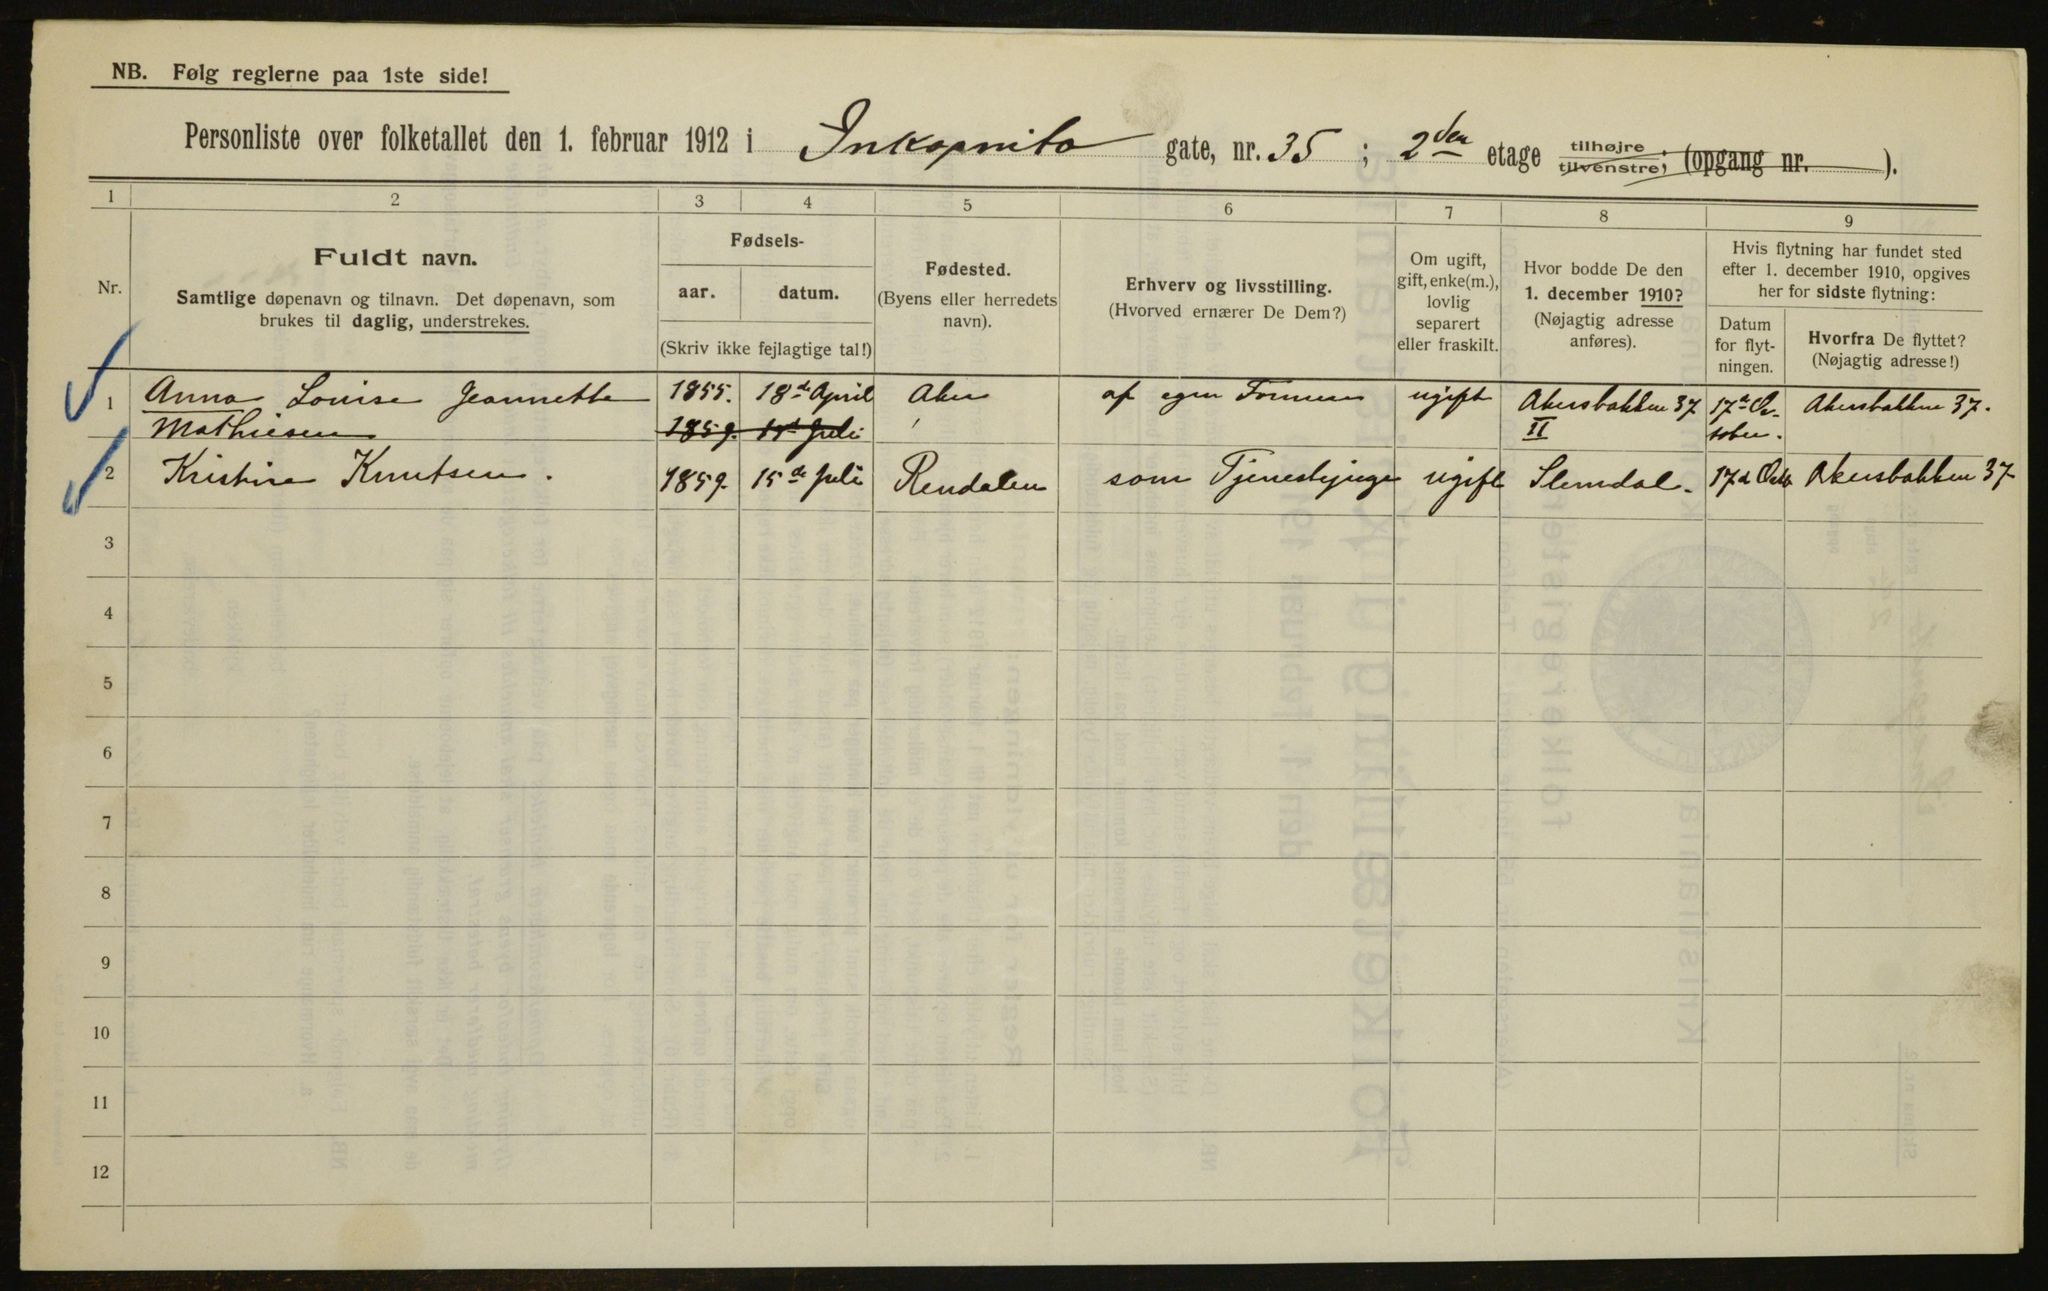 NB. Følg reglerne paa 1ste side!
Personliste over folketallet den 1. februar 1912 i Inkognito gate, nr. 35 ; 2den etage tilhøjre tilvenstre, (opgang nr. ).
1 2 3 4 5 6 7 8 9
Nr.
Fuldt navn.
Samtlige døpenavn og tilnavn. Det døpenavn, som
brukes til daglig, understrekes.
Fødsels-
aar. datum.
(Skriv ikke fejlagtige tal!)
Fødested.
(Byens eller herredets
navn).
Erhverv og livsstilling.
(Hvorved ernærer De Dem?)
Om ugift,
gift, enke(m.),
lovlig
separert
eller fraskilt.
Hvor bodde De den
1. december 1910?
(Nøjagtig adresse
anføres).
Hvis flytning har fundet sted
efter 1. december 1910, opgives
her for sidste flytning:
Datum
for flyt-
ningen.
Hvorfra De flyttet?
(Nøjagtig adresse!)
1 Anna Louise Jeannette 1855. 18de April Aker af egen Formue ugift Akersbakken 37 17de Oc- Akersbakken 37.
Mathiesen 1859. 15de Juli II tober.
2 Kristine Knutsen. 1859. 15de Juli Rendalen som ugift Slemdal. 17d Octb Akersbakken 37
3
4
5
6
7
8
9
10
11
12